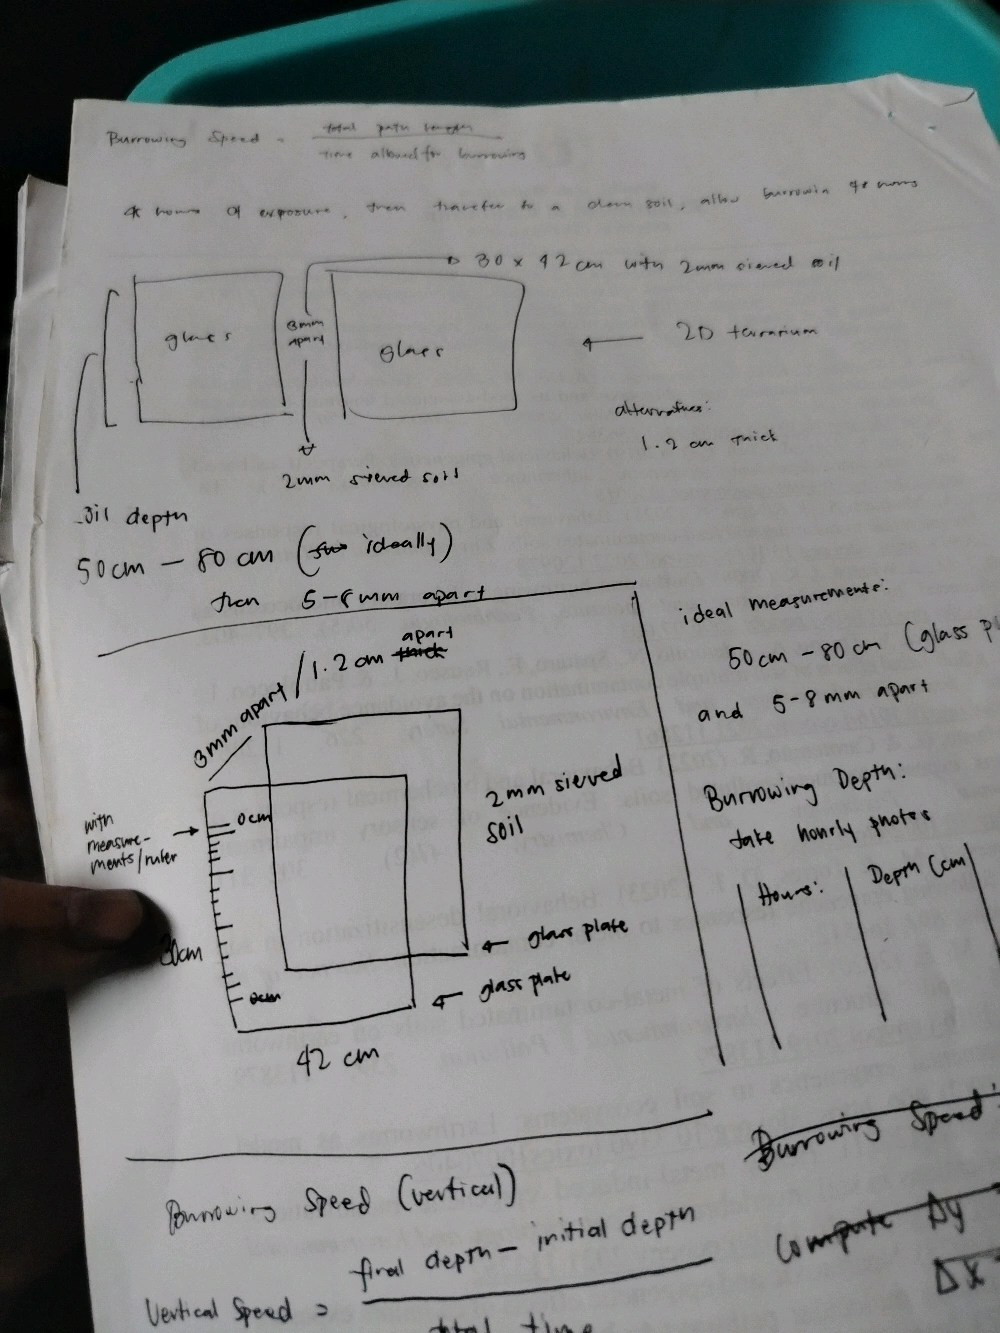 Burrowing Speed = total path length
time allowed for burrowing
hours of exposure, then transfer to a clean soil, allow burrowin 48 hours
30 x 42 cm with 2mm sieved soil
glass
3mm
apart
glass
2D terrarium
alternatives:
1.2 cm thick
2mm sieved soil
oil depth
50cm – 80 cm ( ideally)
then 5-8mm apart
3mm apart / 1.2 cm apart
with
measure-
ments/ruler
0cm
30cm
0cm
42 cm
2mm sieved
soil
glass plate
glass plate
ideal measurements:
50cm – 80cm (glass pl
and 5-8mm apart
Burrowing Depth:
take hourly photos
Hours: Depth (cm)
Burrowing Speed (vertical)
Vertical Speed = final depth – initial depth
total time
Burrowing Speed:
Compute Δy
Δx